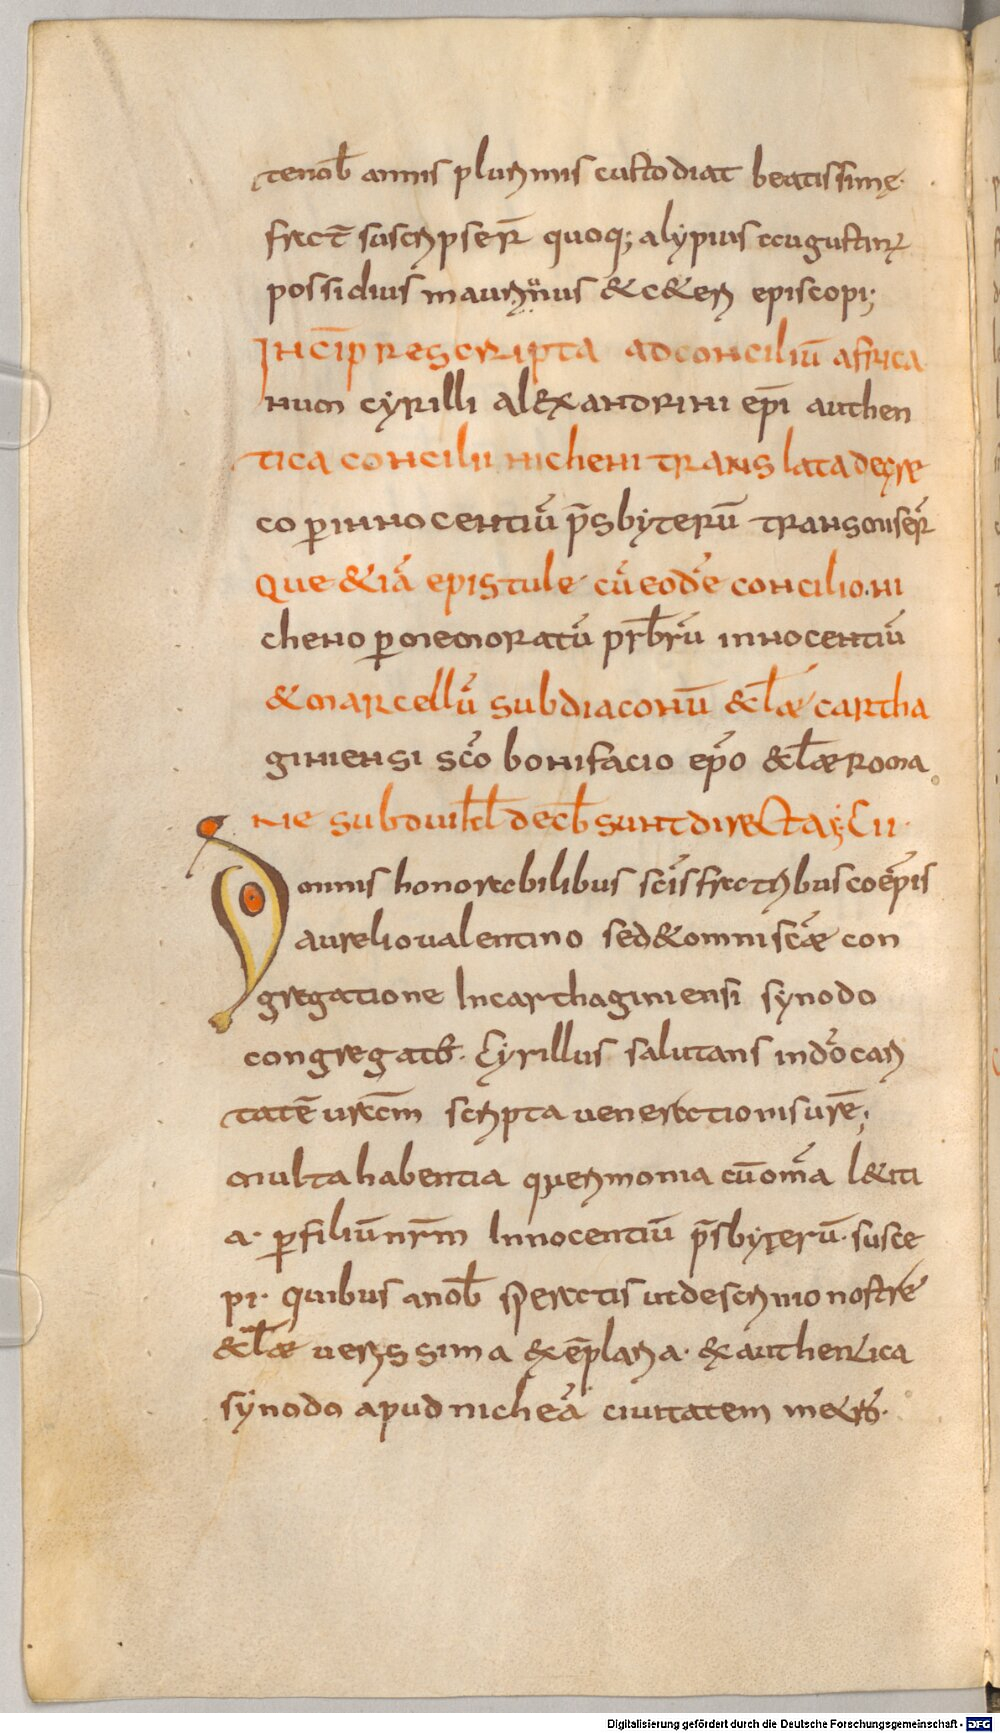 tenob̅ annis plurimis custodiat beatissimę·
fraet̅ suscripser̅ quoq; alypius augustinꝰ
possidius maurinus &c&eri episcopi;
Incip̅ rescripta ad conciliū africa
num cyrilli alexandrini ep̅i authen
tica concilii nicheni translata degre
co ꝑ innocentiū p̅sbyterū transmiser̅
que &iā epistule cū eode concilio ni
cheno ꝑ memoratū prb̅rū innocentiū
& marcellū subdiaconū &cl̅ae cartha
giniensi sc̅o bonifacio ep̅o &cl̅ae roma
ne sub d vi kl̅ decb̅ sunt directa; Cii·
Domnis honorabilibus sc̅is fratribus coep̅is
aurelio ualentino sed & omni sc̅ae con
gregatione In carthaginiensi synodo
congregatis· Cyrillus salutans in dn̅o cari
tatē uram̅ scripta uenerationis ure̅;
multa habentia querimonia cū om̅a l&iti
a· ꝑ filiū nr̅m Innocentiū p̅sbyterū· susce
pi· Quibus a nob̅ speratis ut de scrinio nostre
&cl̅ae uerissima exēplaria· & authentica
synodo apud nicheā ciuitatem m&ro·
Digitalisierung gefördert durch die Deutsche Forschungsgemeinschaft - DFG